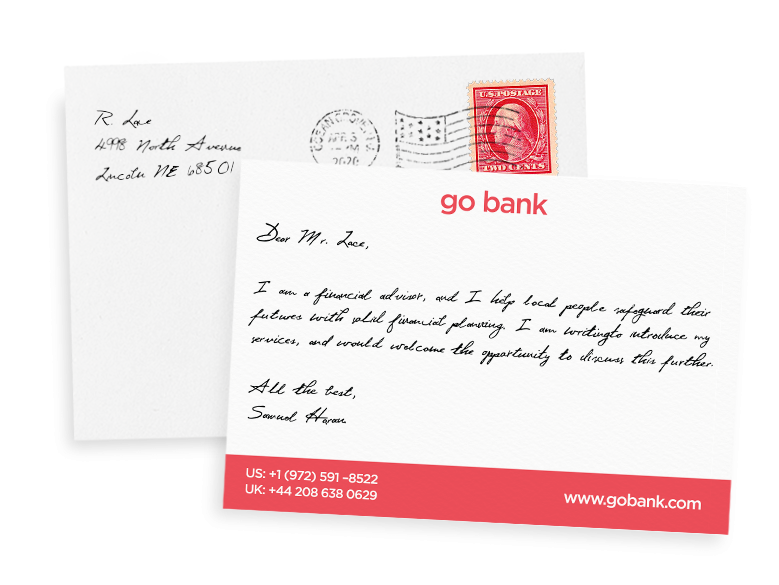 R. Lace
4998 North Avenue
Lincoln NE 68501
APR 5
2020
U.S. POSTAGE
TWO CENTS
go bank
Dear Mr. Lace,
I am a financial advisor, and I help local people safeguard their
futures with solid financial planning. I am writingto introduce my
services, and would welcome the opportunity to discuss this further.
All the best,
Samuel Haran
US: +1 (972) 591 –8522
UK: +44 208 638 0629
www.gobank.com